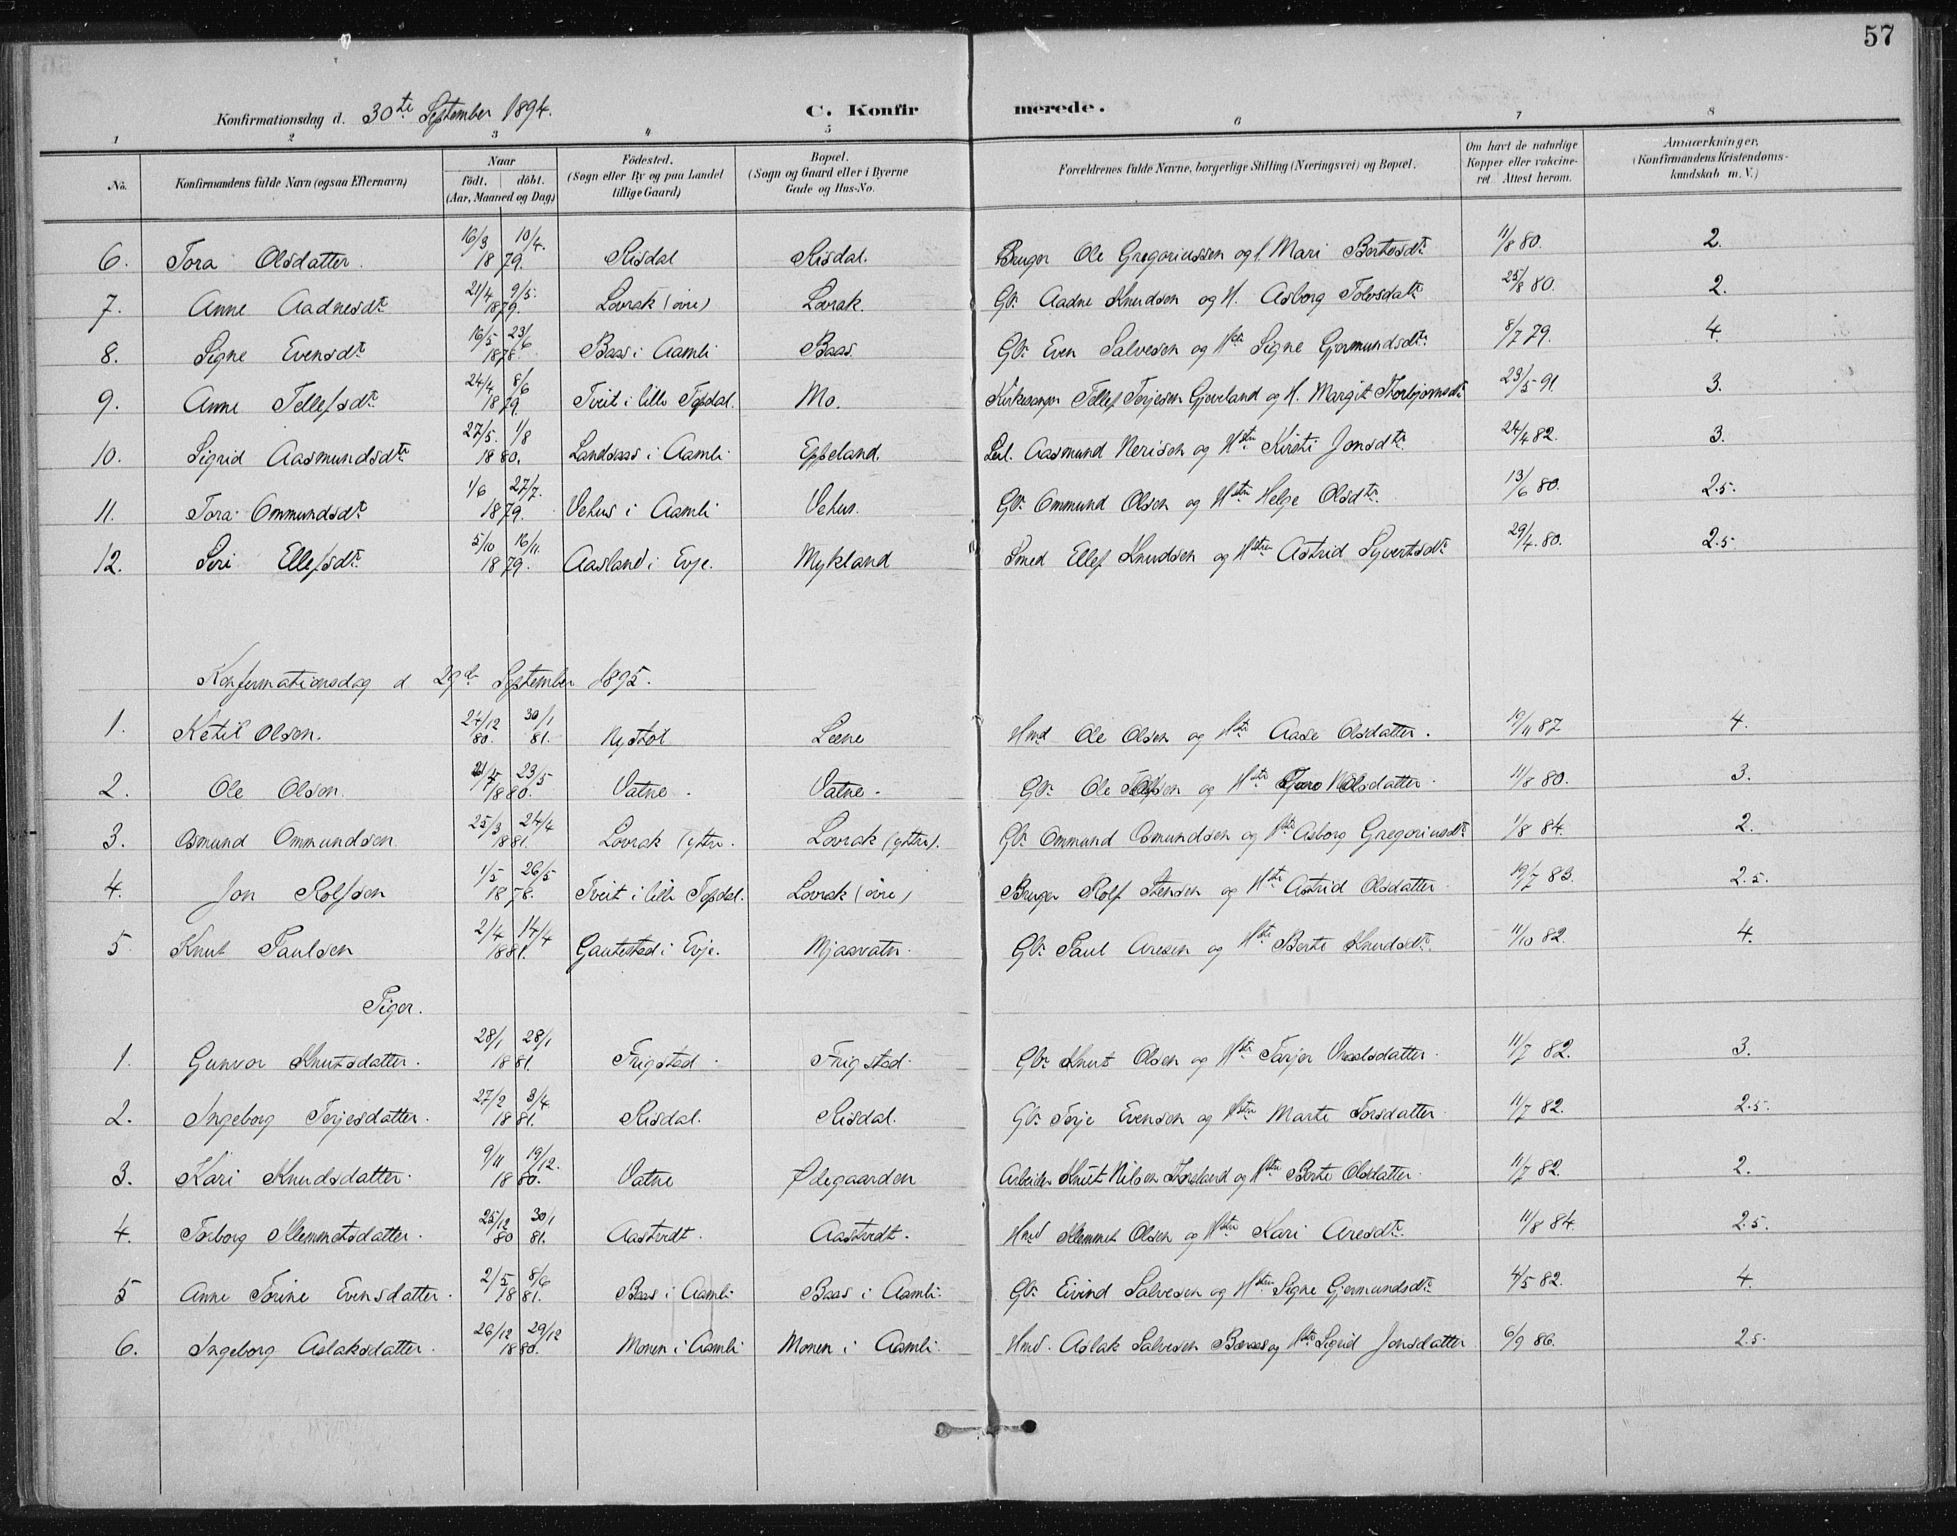 57
Konfirmationsdag d. 30te September 1894. C. Konfirmerede.
1 2 3 4 5 6 7 8
No. Konfirmandens fulde Navn (ogsaa Efternavn) Naar født. døbt. (Aar, Maaned og Dag) Fødested. (Sogn eller By og paa Landet tillige Gaard) Bopæl. (Sogn og Gaard eller i Byerne Gade og Hus-No. Forældrenes fulde Navne, borgerlige Stilling (Næringsvei) og Bopæl. Om havt de naturlige Kopper eller vakcineret. Attest herom. Anmærkninger. (Konfirmandens Kristendomskundskab m. V.)
6. Tora Olsdatter. 16/3 10/4. 1879. Risdal Risdal. Bruger Ole Gregoriussen og H. Mari Bertesdtr. 11/8 80. 2.
7. Anne Aadnesdtr. 21/4 9/5. 1879. Lovrak (øvre) Lovrak. Gbr. Aadne Knudsen og H. Asborg Tolvsdatr. 25/8 80. 2.
8. Signe Evensdtr. 16/5 23/6 1878. Baas i Aamli Baas. Gbr. Even Salvesen og Hstr. Signe Gjermundsdtr. 8/7 79. 4.
9. Anne Tellefsdtr. 24/4 8/6 1879. Tveit i lille Topdal. Mo. Kirkesanger Tellef Terjesen Gjøveland og H. Margit Thorbjørnsdtr 23/5 91. 3.
10. Sigrid Aasmundsdtr. 27/5. 1/8 1880. Landsaas i Aamli Eppeland. Lel. Aasmund Nerisen og Hstru Kirsti Jonsdtr. 24/4 82. 3.
11. Tora Ommundsdtr. 1/6 27/7. 1879. Vehus i Aamli Vehus. Gbr. Ommund Olsen og Hstru Helge Olsdtr. 13/6 80. 2.5.
12. Siri Ellefsdtr. 5/10 16/11. 1879. Aasland i Evje. Mykland Smed Ellef Knudsen og Hstru Astrid Syvertsdtr. 29/4. 80. 2.5.
Konfermationsdag d. 29de September 1895.
1. Ketil Olsen. 24/12 80. 30/1 81. Nystøl Leene Hmd Ole Olsen og Hstr Aase Olsdatter. 19/11 87 4.
2. Ole Olsen. 23/5 1880. Vatne. Vatne. Gbr. Ole og Hstr 11/8 80. 3.
3. Osmund Ommundsen 25/3 24/4 1881. Lovrak (yttre. Lovrak (yttre). Gbr. Ommund Osmundsen og Hstr Asborg Gregoriusdtr 1/8 84. 2.
4. Jon Rolfsen 1/5 26/5 1878. Tveit i lille Topdal. Lovrak (øvre) Bruger Rolf Stensen og Hstr Astrid Olsdatter. 19/7 83. 2.5.
5 Knut Paulsen 2/4 14/4 1881. Gautestad i Evje. Mjaavatn. Gbr. Paul Aresen og Hstr Berte Knudsdtr. 11/10 82. 4.
Piger.
1. Gunvor Knutsdatter. 28/1 28/1 1881. Frigsted. Frigsted. Gbr. Knut Olsen og Hstr Tarjer Vraalsdatter. 11/7 82. 3.
2. Ingeborg Terjesdatter. 27/2 3/4 1881. Risdal. Risdal. Gbr. Terje Evensen og Hstru Marte Torsdatter. 11/7 82. 2.5.
3. Kari Knudsdatter. 9/11 19/12. 1880. Vatne Ødegaarden Arbeider Knut Nilsen og Hstr Berte Olsdatter. 11/7 82. 2.
4. Torborg Klemmetsdatter. 25/12 80 30/1 81. Aastvedt. Aastvedt. Hmd Klemmet Olsen og Hstru Kari Aresdtr. 11/8 84. 2.5.
5 Anne Torine Evensdatter. 2/5 8/6 1881. Baas i Aamli Baas i Aamli. Gbr. Eivind Salvesen og Hstru Signe Gjermundsdtr 4/5 82. 4.
6. Ingeborg Aslaksdatter. 26/12 29/12 1880. Monen i Aamli. Monen i Aamli. Hmd. Aslak Salvesen og Hstr Sigrid Jonsdatter 6/9 86. 2.5.